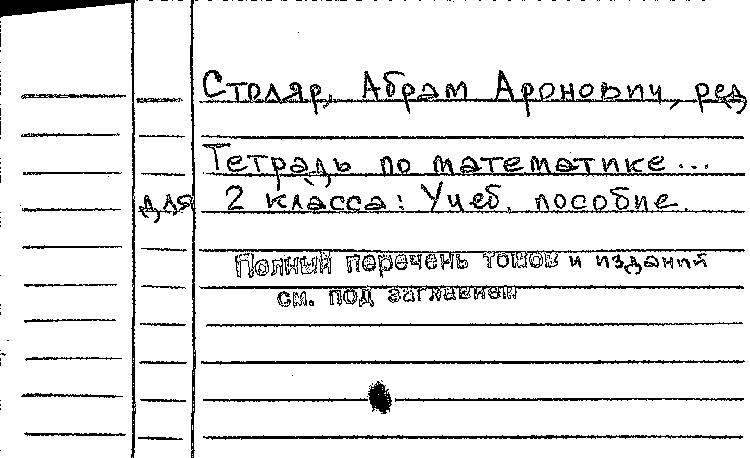 Столяр, Абрам Аронович, ред
Тетрадь по математике...
для 2 класса: Учеб. пособие.
Полный перечень томов и изданий
см. под заглавием